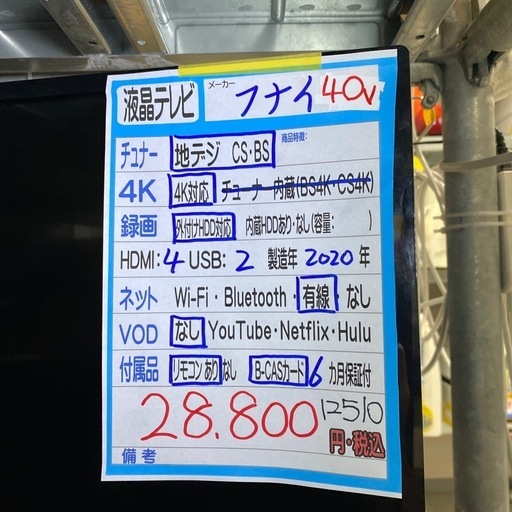 液晶テレビ メーカー フナイ 40V
チューナー 地デジ CS・BS 商品特徴:
4K 4K対応 チューナー内蔵(BS4K・CS4K)
録画 外付けHDD対応 内蔵HDDあり・なし(容量: )
HDMI:4 USB:2 製造年 2020年
ネット Wi-Fi・Bluetooth・有線・なし
VOD なし YouTube・Netflix・Hulu
付属品 リモコンあり なし B-CASカード 6カ月保証付
28.800 12510
円・税込
備考